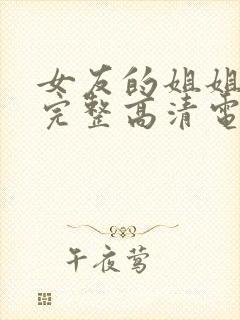 女友的姐姐
完整高清電
午夜莺